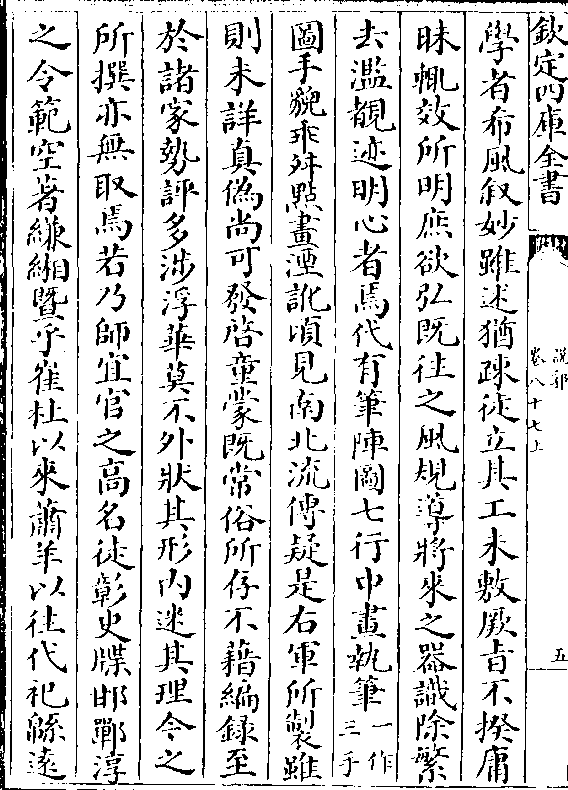 欽定四庫全書
說郛
卷八十七上
五
學者希風叙妙雖述猶疎徒立其工未敷厥旨不揆庸
昧輒效所明庶欲弘既徃之風規導將來之器識除繁
去濫覩迹明心者焉代有筆陣圖七行中畫執筆一作三手
圖手貌乖舛點畫湮訛頃見南北流傳疑是右軍所製雖
則未詳真偽尚可發啓童蒙既常俗所存不藉編録至
於諸家勢評多涉浮華莫不外狀其形内迷其理今之
所撰亦無取焉若乃師宜官之高名徒彰史牒邯鄲淳
之令範空著縑緗暨乎崔杜以來蕭羊以徃代祀緜逺